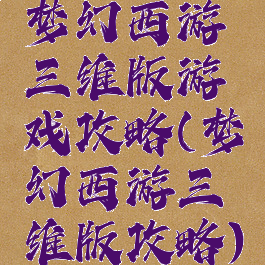 梦幻西游
三维版游
戏攻略(梦
幻西游三
维版攻略)